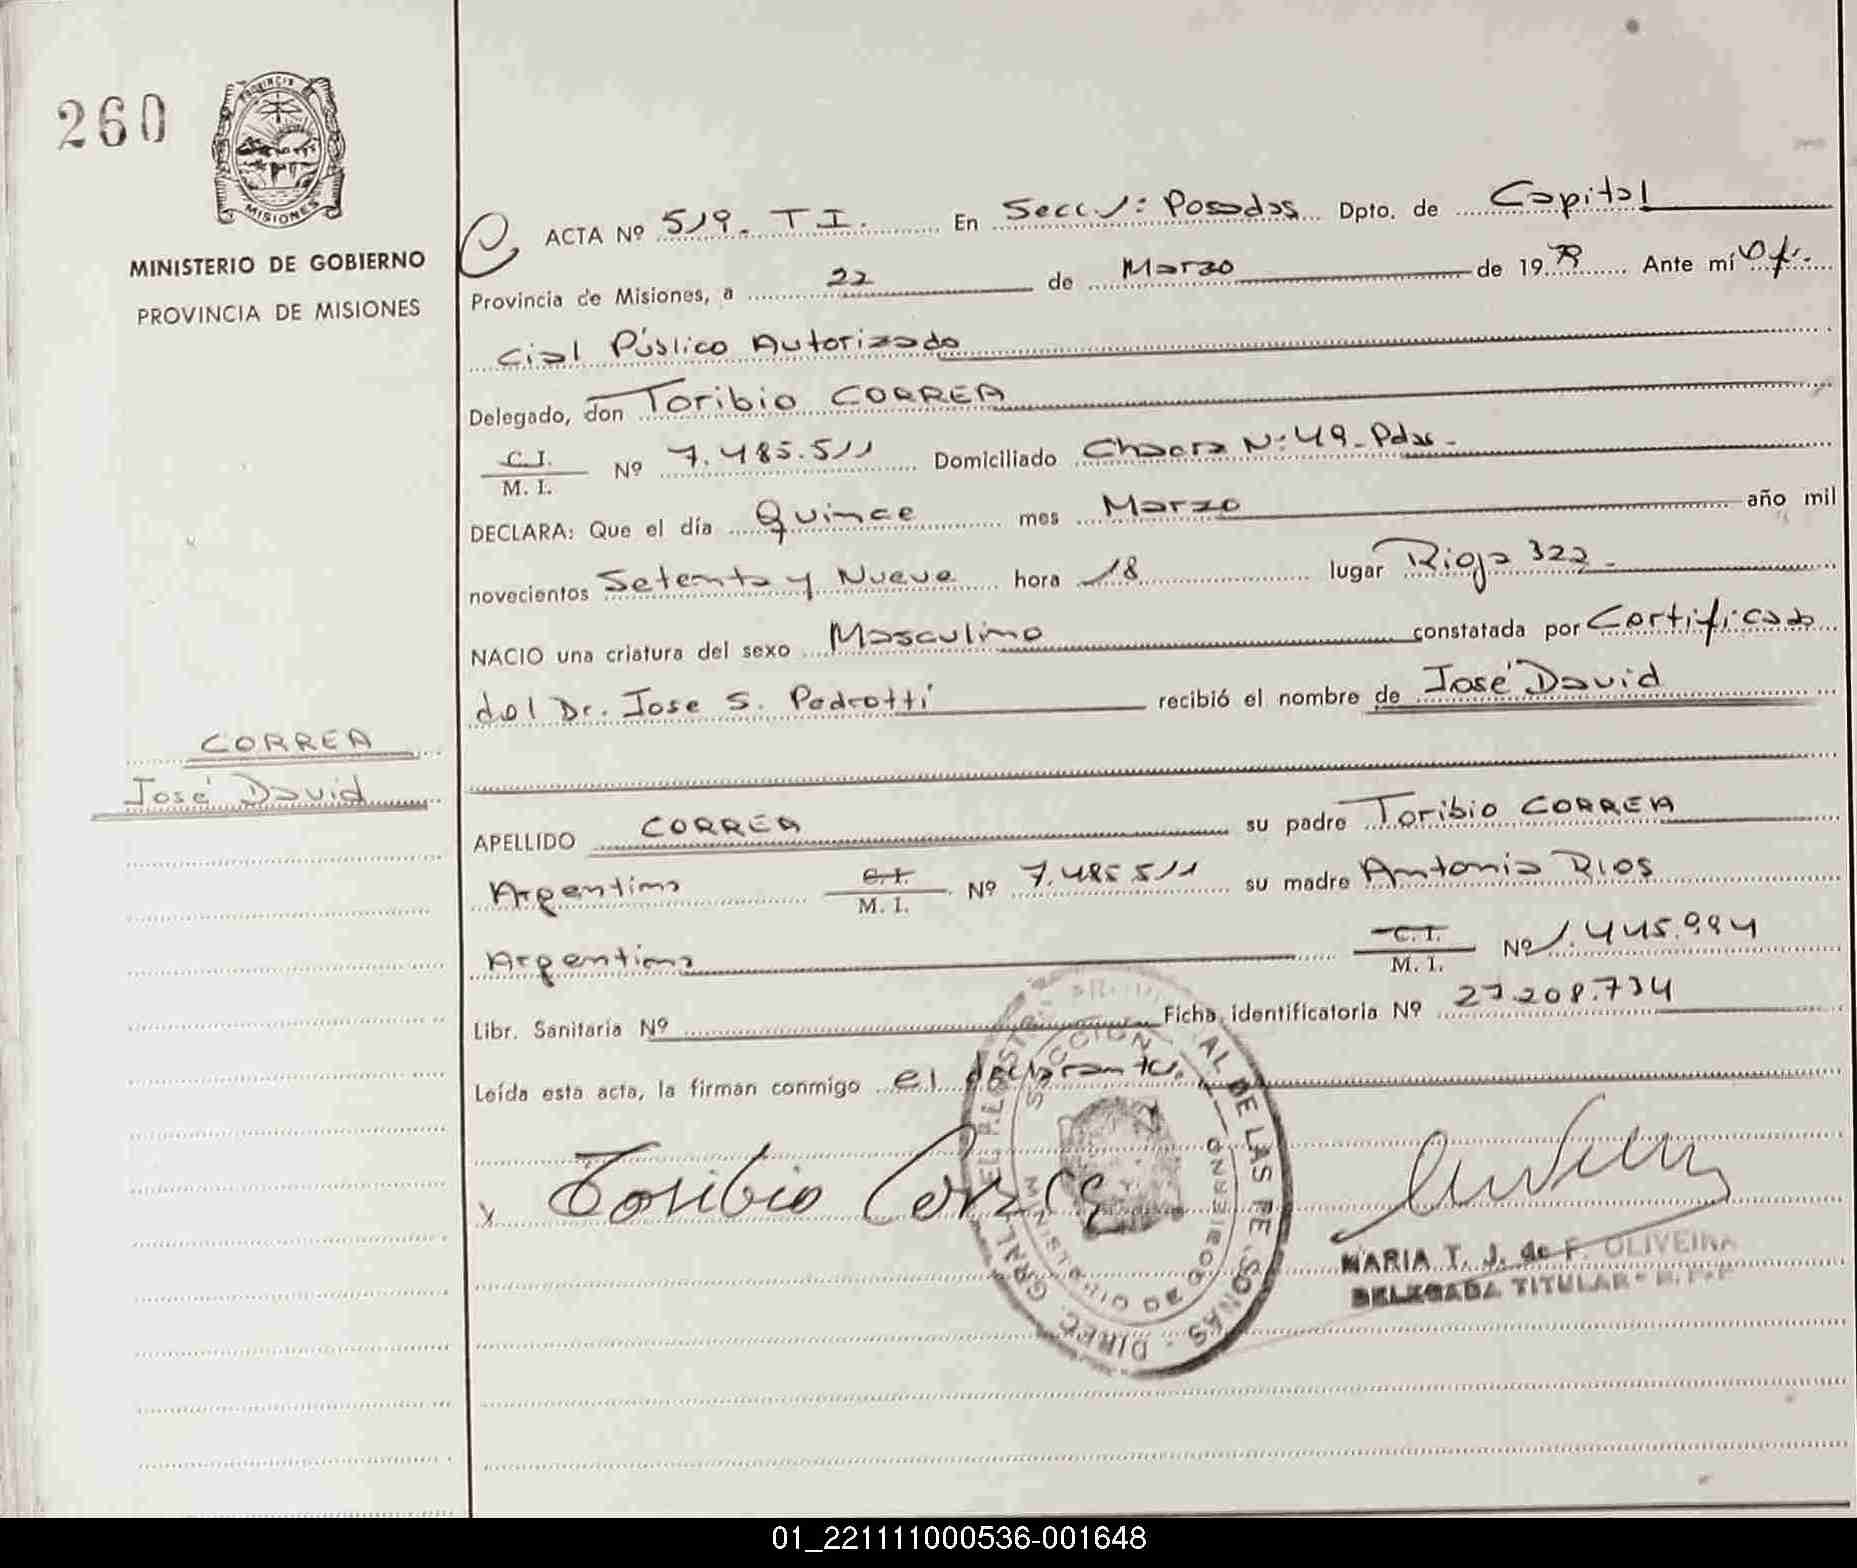 260
PROVINCIA
MISIONES
MINISTERIO DE GOBIERNO
PROVINCIA DE MISIONES
CORREA
José David
ACTA Nº 519. T I. En Secc. : Posadas Dpto. de Capital
Provincia de Misiones, a 22 de Marzo de 1979 Ante mí Ofi-
cial Público Autorizado
Delegado, don Toribio CORREA
C. I.
M. I. Nº 7.485.511 Domiciliado Chacra Nº 49 - Pdas -
DECLARA: Que el día Quince mes Marzo año mil
novecientos Setenta y Nueve hora 18 lugar Rioja 322 -
NACIO una criatura del sexo Masculino constatada por Certificado
del Dr. Jose S. Pedrotti recibió el nombre de José David
APELLIDO CORREA su padre Toribio CORREA
Argentino C. I.
M. I. Nº 7.485.511 su madre Antonia Rios
Argentina C. I.
M. I. Nº 1.445.994
Libr. Sanitaria Nº Ficha identificatoria Nº 27.208.734
Leída esta acta, la firman conmigo el declarante.
x Toribio Correa
MARIA T. J. de F. OLIVEIRA
DELEGADA TITULAR
01_221111000536-001648